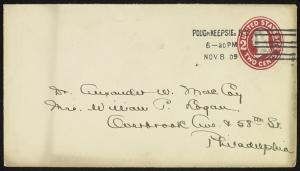 POUGHKEEPSIE, N.Y.
6-30PM
NOV 8 09
UNITED STATES
2 TWO CENTS
Dr. Alexander W. MacCoy
Mrs. William P. Logan
Overbrook Ave & 58th St.
Philadelphia